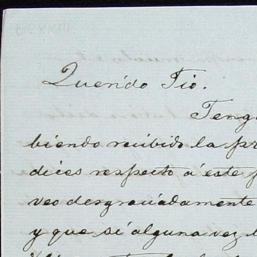 Querido Tio.
Teng
biendo recibido la pr
dices respecto á este p
veo desgraciadamente
y que si alguna vez l